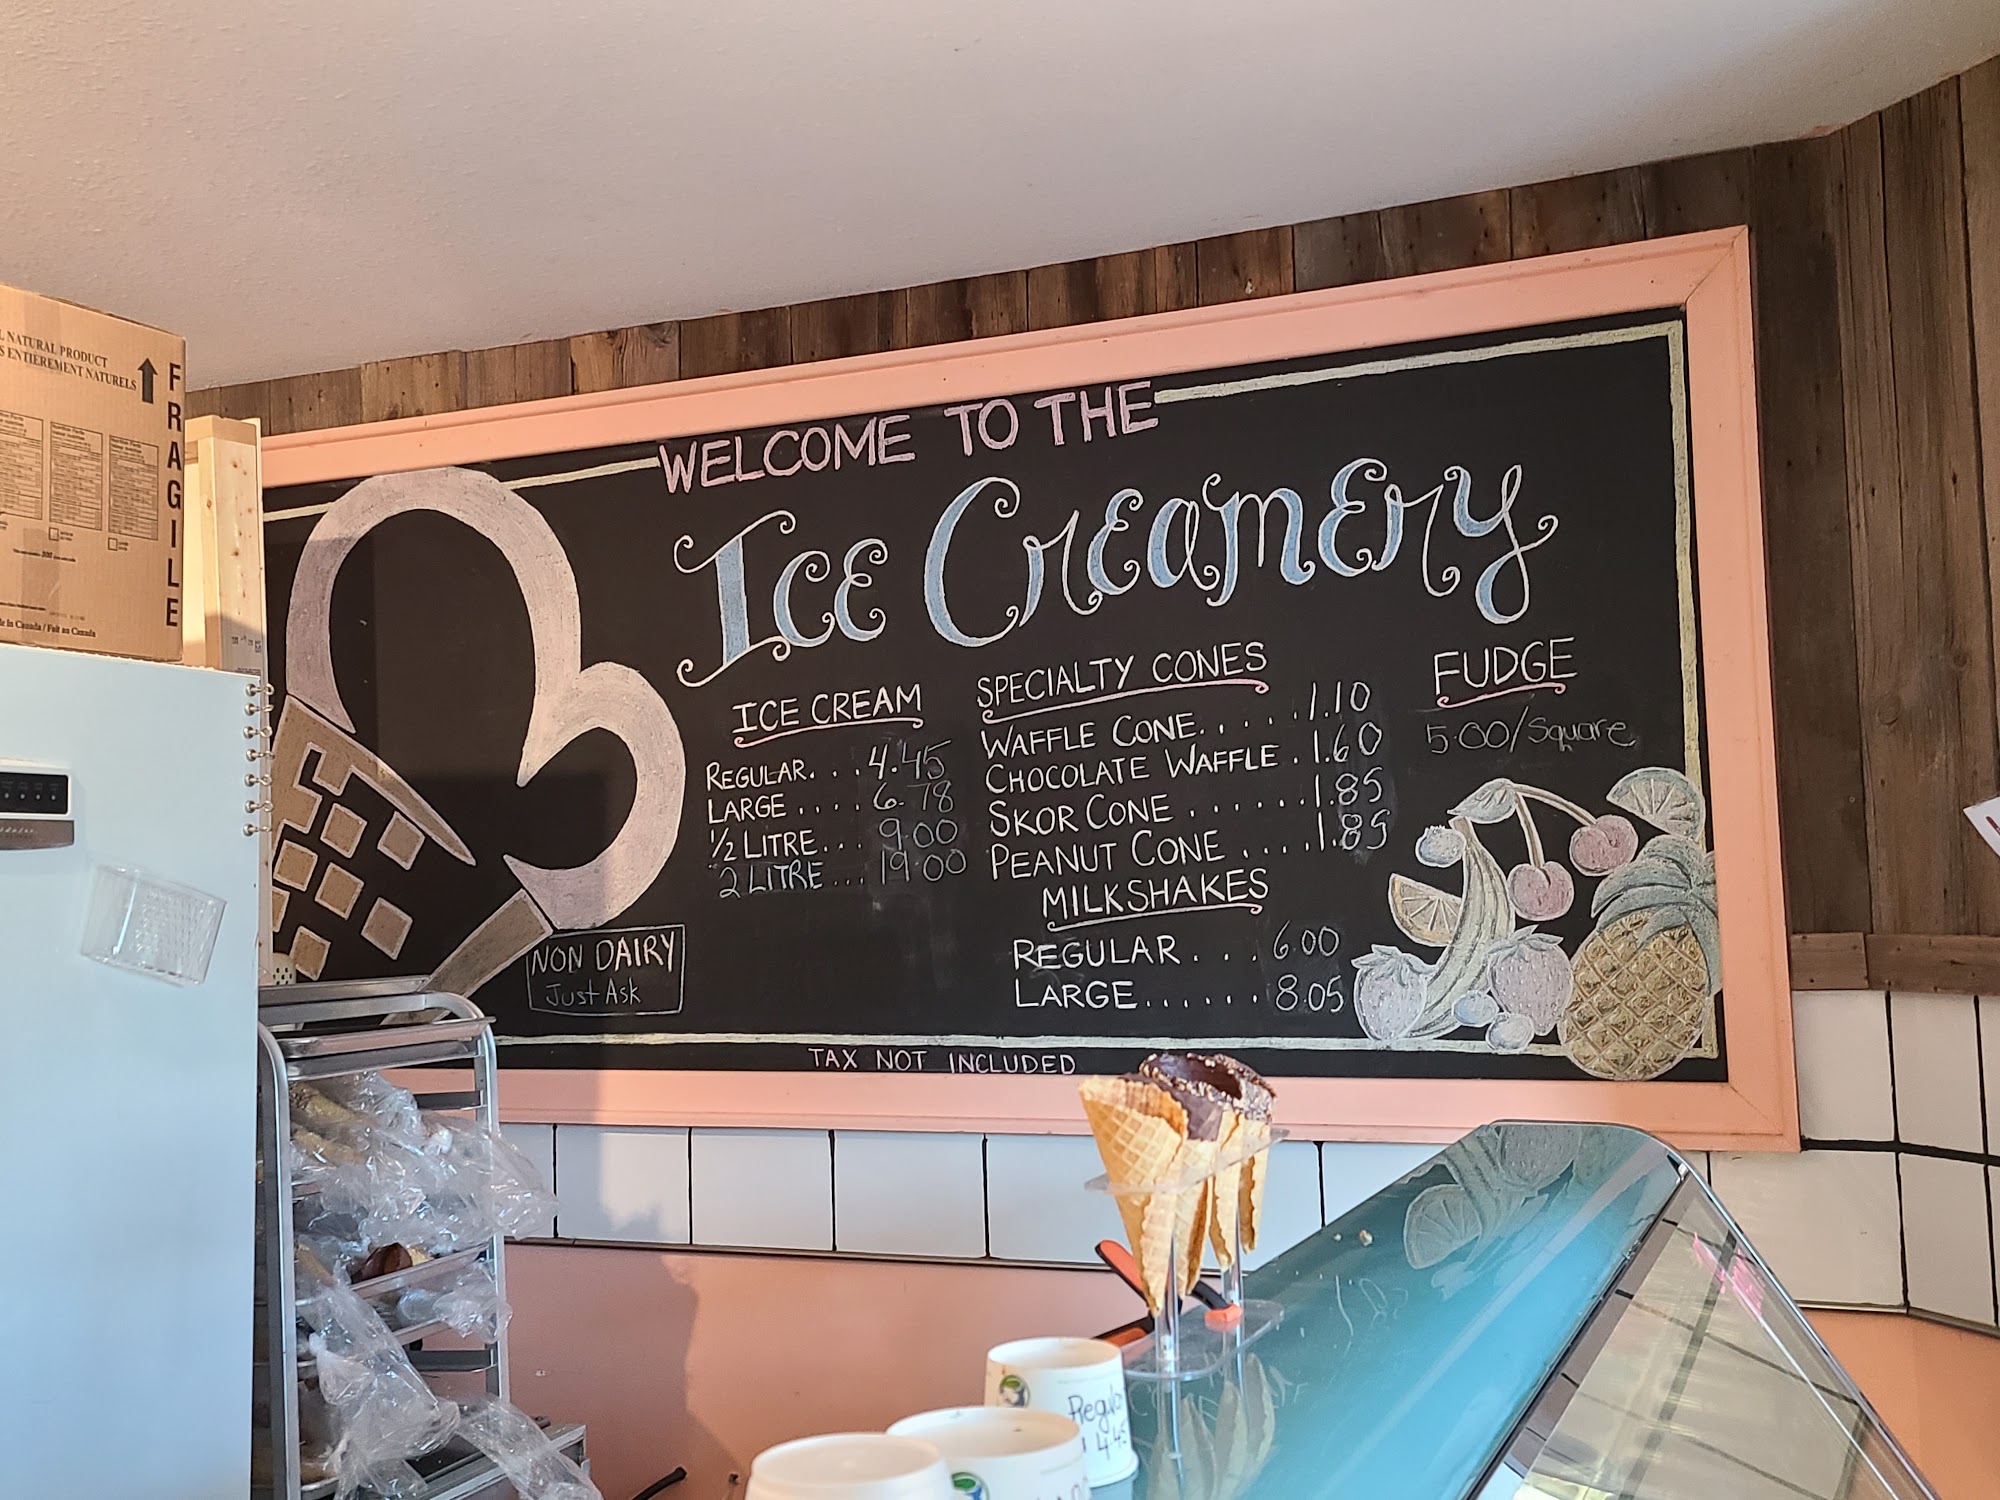 L NATURAL PRODUCT
S ENTIEREMENT NATURELS
FRAGILE
de in Canada / Fait au Canada
WELCOME TO THE
ICE CREAMERY
ICE CREAM
REGULAR... 4.45
LARGE .... 6.78
1/2 LITRE... 9.00
2 LITRE ... 19.00
NON DAIRY
Just Ask
SPECIALTY CONES
WAFFLE CONE..... 1.10
CHOCOLATE WAFFLE . 1.60
SKOR CONE ...... 1.85
PEANUT CONE .... 1.85
MILKSHAKES
REGULAR... 6.00
LARGE...... 8.05
FUDGE
5.00/Square
TAX NOT INCLUDED
Regular
4.45